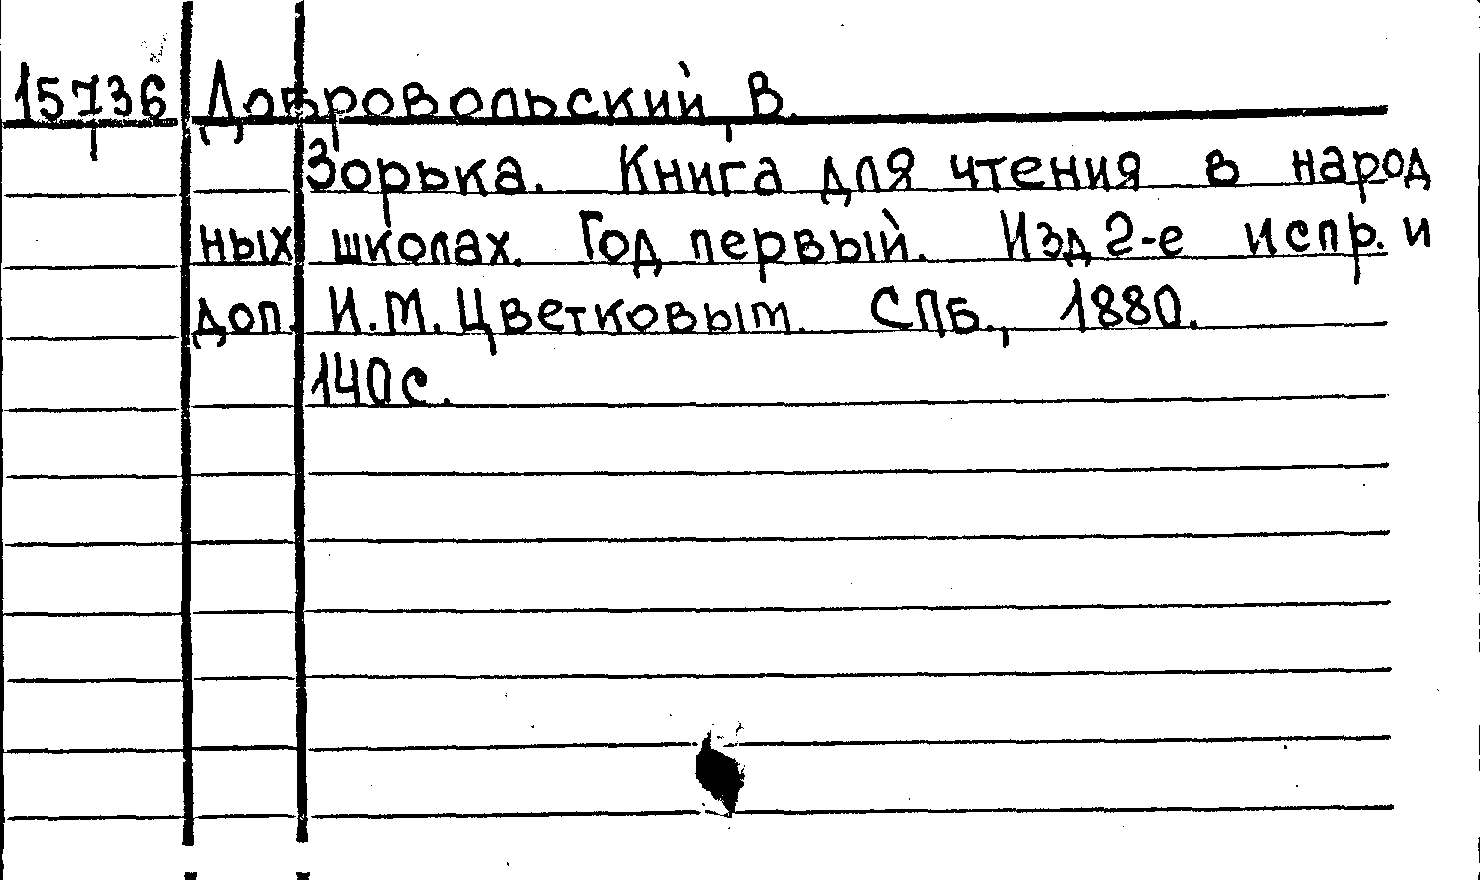 15736 Добровольский, В.
Зорька. Книга для чтения в народ
ных школах. Год первый. Изд 2-е испр. и
доп. И.М. Цветковым. СПБ., 1880.
140 с.